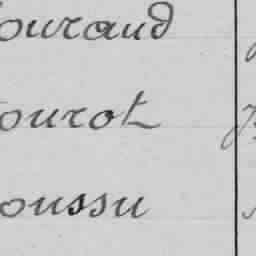 ouraud
ourot
oussu